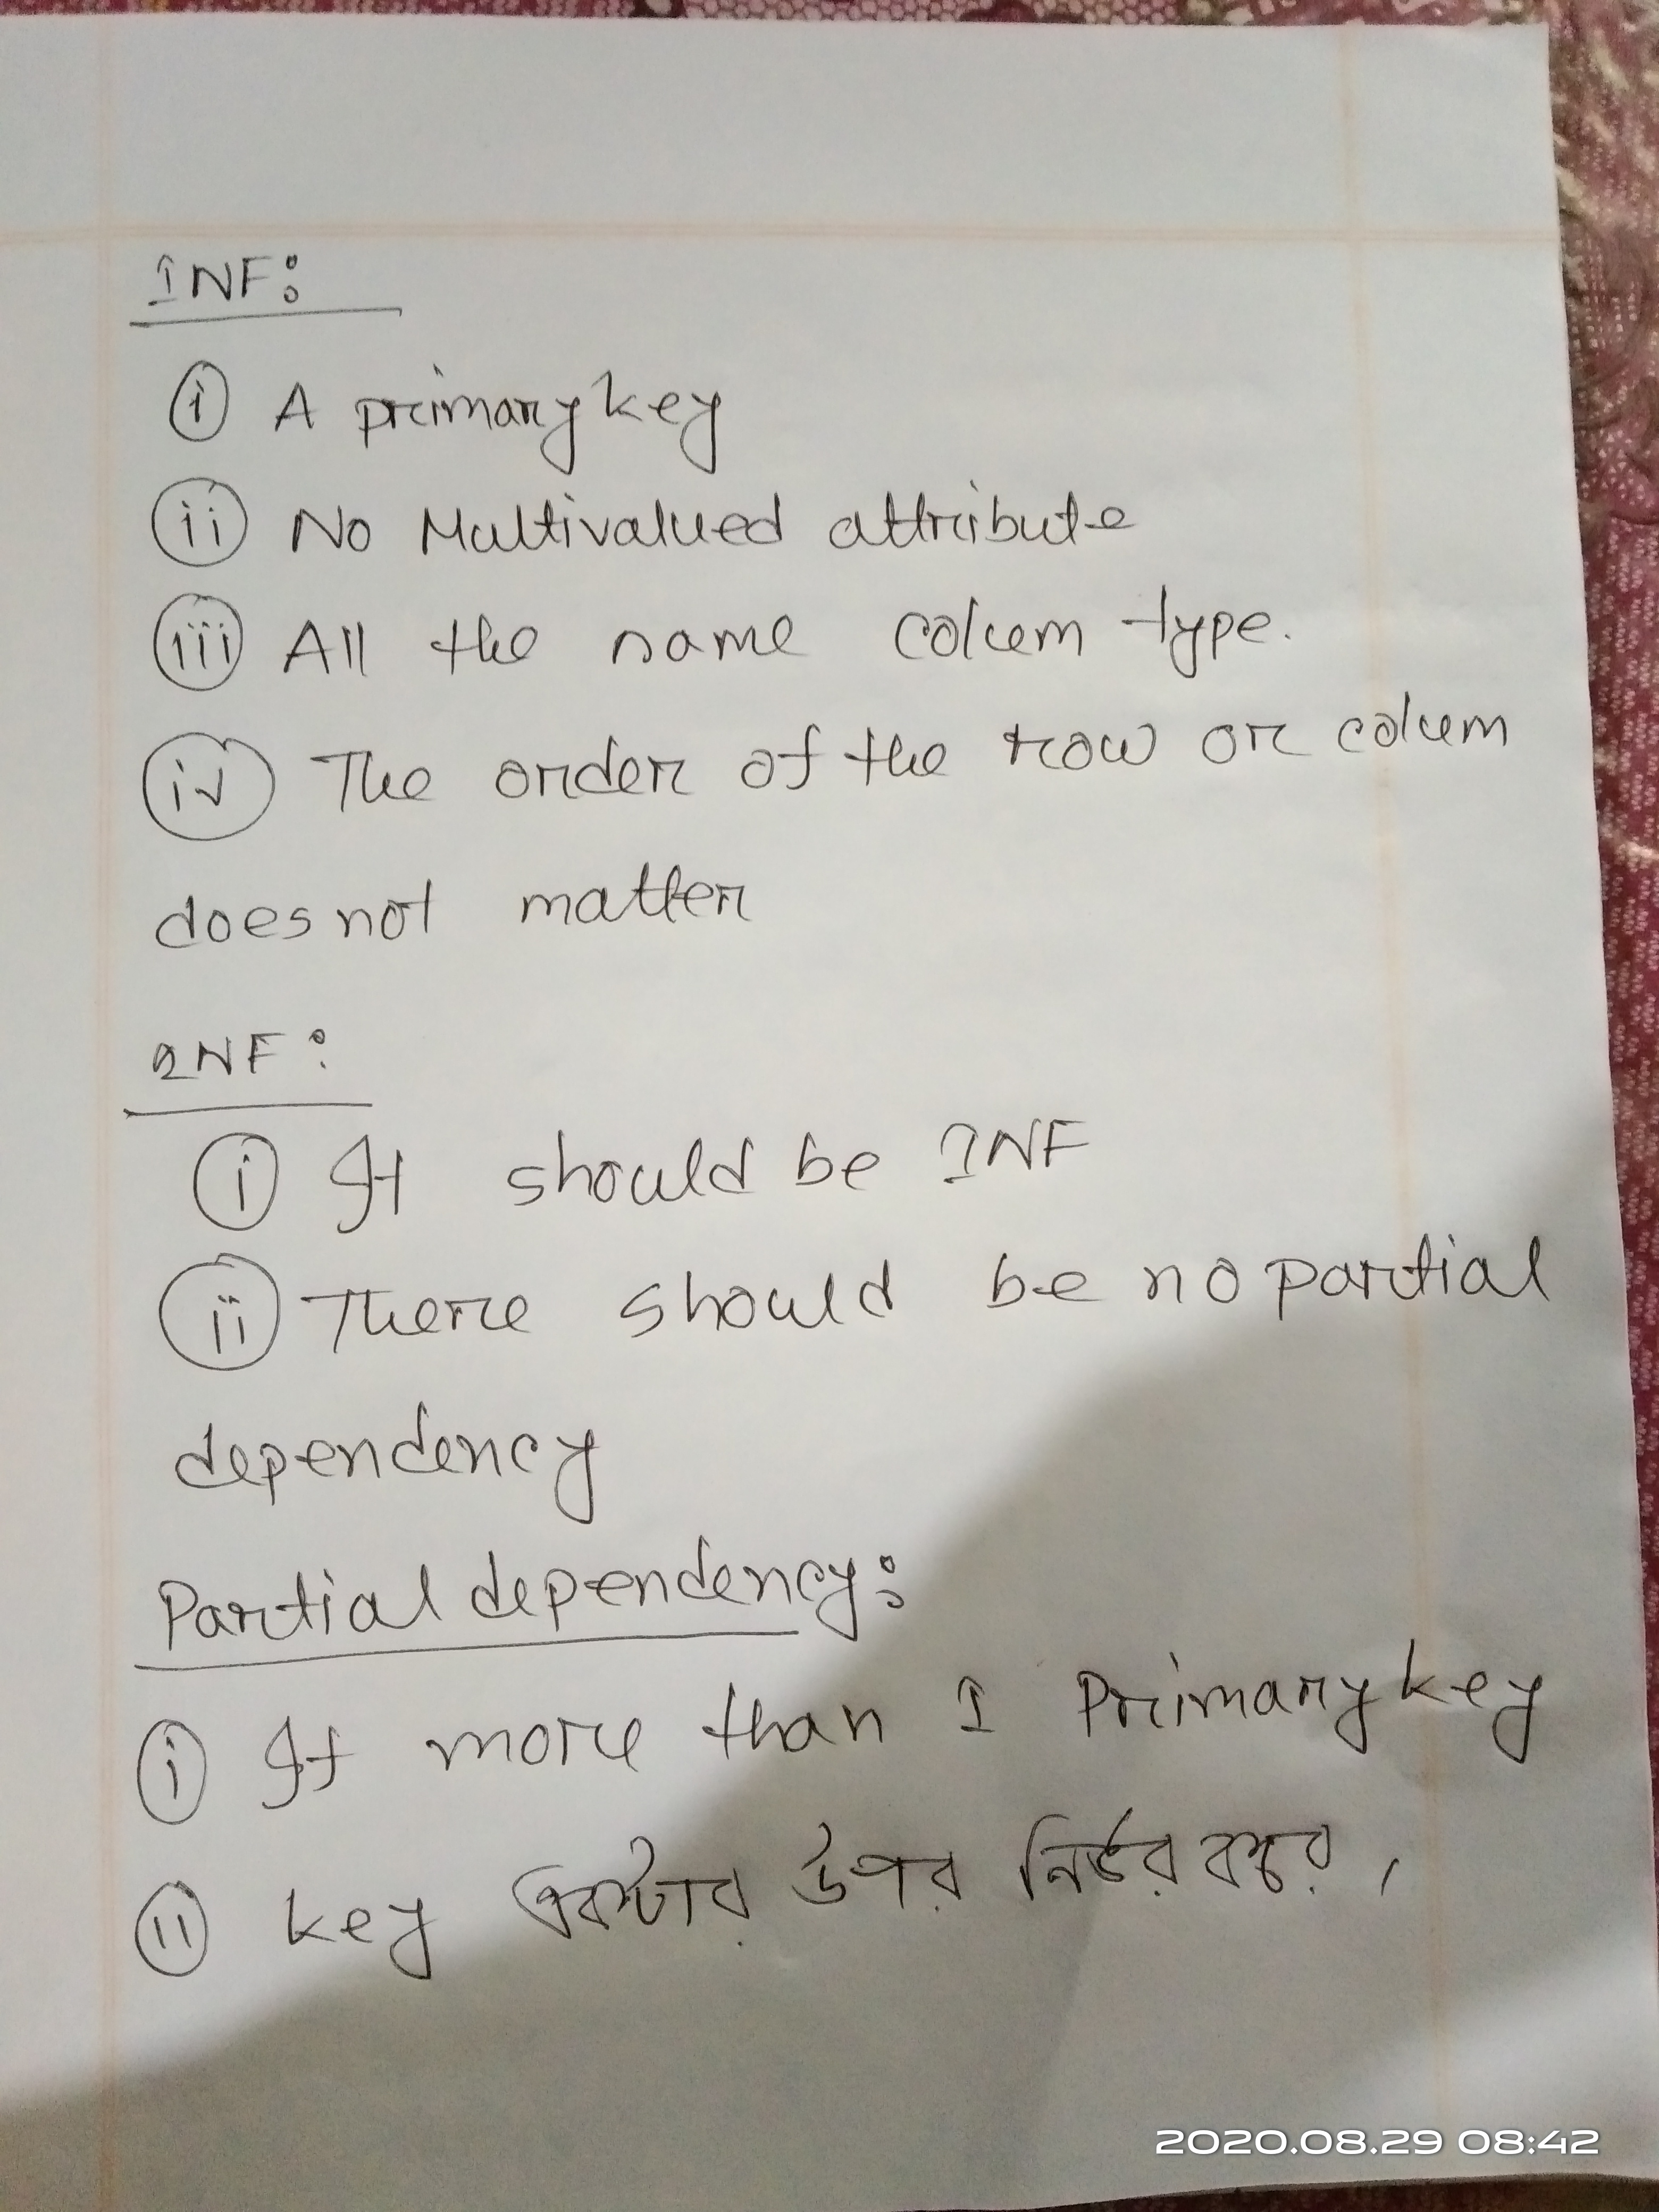 1NF:
i A primary key
ii No Multivalued attribute
iii All the name colum type.
iv The order of the row or colum
does not matter
2NF:
i It should be 1NF
ii There should be no partial
dependency
Partial dependency:
i If more than 1 Primary key
ii key একটার উপর নির্ভর করে,
2020.08.29 08:42